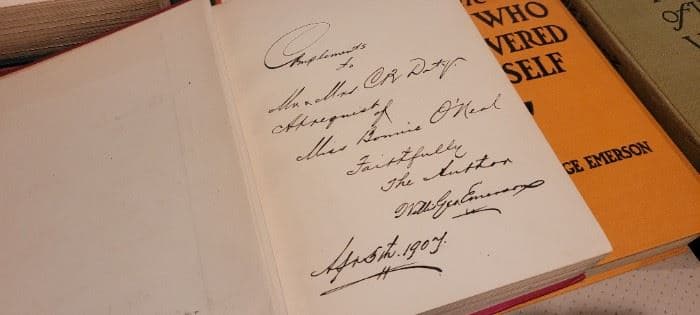 Compliments
to
Mr & Mrs C R Doty
At request of
Miss Bonnie O'Neal
Faithfully
The Author
Willis Geo Emerson
Apr 5th. 1907.
WHO
VERED
SELF
GE EMERSON